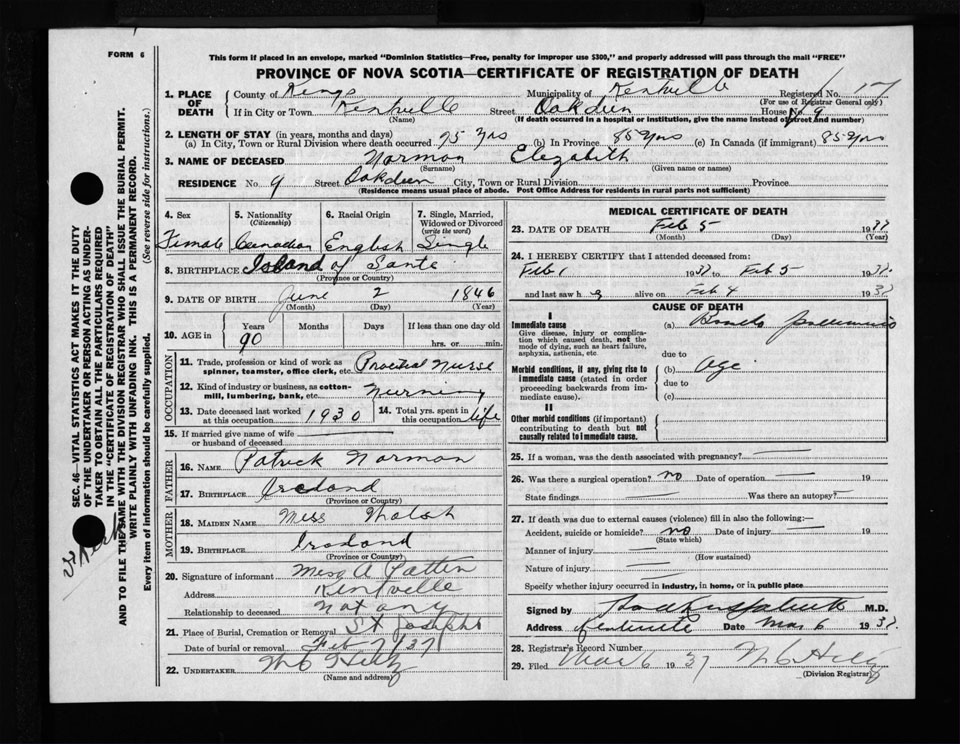 FORM 6
This form if placed in an envelope, marked "Dominion Statistics—Free, penalty for improper use $300," and properly addressed will pass through the mail "FREE"
PROVINCE OF NOVA SCOTIA—CERTIFICATE OF REGISTRATION OF DEATH
1. PLACE OF DEATH
County of Kings Municipality of Kentville Registered No. 17
(For use of Registrar General only)
If in City or Town Kentville Street Oakdeen House No. 9
(Name) (If death occurred in a hospital or institution, give the name instead of street and number)
2. LENGTH OF STAY (in years, months and days)
(a) In City, Town or Rural Division where death occurred 75 yrs (b) In Province 85 yrs (c) In Canada (if immigrant) 85 yrs
3. NAME OF DECEASED Norman Elezabith
(Surname) (Given name or names)
RESIDENCE No. 9 Street Oakdeen City, Town or Rural Division Province
(Residence means usual place of abode. Post Office Address for residents in rural parts not sufficient)
4. Sex
Fimale
5. Nationality
(Citizenship)
Canadian
6. Racial Origin
English
7. Single, Married, Widowed or Divorced
(write the word)
Single
8. BIRTHPLACE Island of Sante
(Province or Country)
9. DATE OF BIRTH June 2 1846
(Month) (Day) (Year)
10. AGE in Years Months Days If less than one day old
90 hrs. or min.
OCCUPATION
11. Trade, profession or kind of work as spinner, teamster, office clerk, etc. Practial Nurse
12. Kind of industry or business, as cotton-mill, lumbering, bank, etc. Nursing
13. Date deceased last worked at this occupation 1930
14. Total yrs. spent in this occupation life
15. If married give name of wife or husband of deceased
FATHER
16. NAME Patrick Norman
17. BIRTHPLACE Ireland
(Province or Country)
MOTHER
18. MAIDEN NAME Miss Walsh
19. BIRTHPLACE Ireland
(Province or Country)
20. Signature of informant A Patten
Address Kentville
Relationship to deceased Not any
21. Place of Burial, Cremation or Removal St Josephs
Date of burial or removal Feb 7/37
22. UNDERTAKER
(Name and address)
MEDICAL CERTIFICATE OF DEATH
23. DATE OF DEATH Feb 5 1937
(Month) (Day) (Year)
24. I HEREBY CERTIFY that I attended deceased from:
Feb 1 1937 to Feb 5 1937
and last saw h alive on Feb 4 1937
CAUSE OF DEATH
I
Immediate cause
Give disease, injury or complication which caused death, not the mode of dying, such as heart failure, asphyxia, asthenia, etc
(a) Broncho pneumonia
due to
Morbid conditions, if any, giving rise to immediate cause (stated in order proceeding backwards from immediate cause).
(b) Age
due to
(c)
II
Other morbid conditions (if important) contributing to death but not causally related to immediate cause.
25. If a woman, was the death associated with pregnancy?
26. Was there a surgical operation? no Date of operation 19
State findings Was there an autopsy?
27. If death was due to external causes (violence) fill in also the following:—
Accident, suicide or homicide? no Date of injury 19
(State which)
Manner of injury
(How sustained)
Nature of injury
Specify whether injury occurred in industry, in home, or in public place
Signed by M.D.
Address Kentville Date Mar 6 1937
28. Registrar's Record Number
29. Filed Mar 6 1937
(Division Registrar)
SEC. 46—VITAL STATISTICS ACT MAKES IT THE DUTY
OF THE UNDERTAKER OR PERSON ACTING AS UNDER-
TAKER TO OBTAIN ALL THE PARTICULARS REQUIRED
IN THE "CERTIFICATE OF REGISTRATION OF DEATH"
AND TO FILE THE SAME WITH THE DIVISION REGISTRAR WHO SHALL ISSUE THE BURIAL PERMIT.
WRITE PLAINLY WITH UNFADING INK. THIS IS A PERMANENT RECORD.
Every item of information should be carefully supplied. (See reverse side for instructions.)